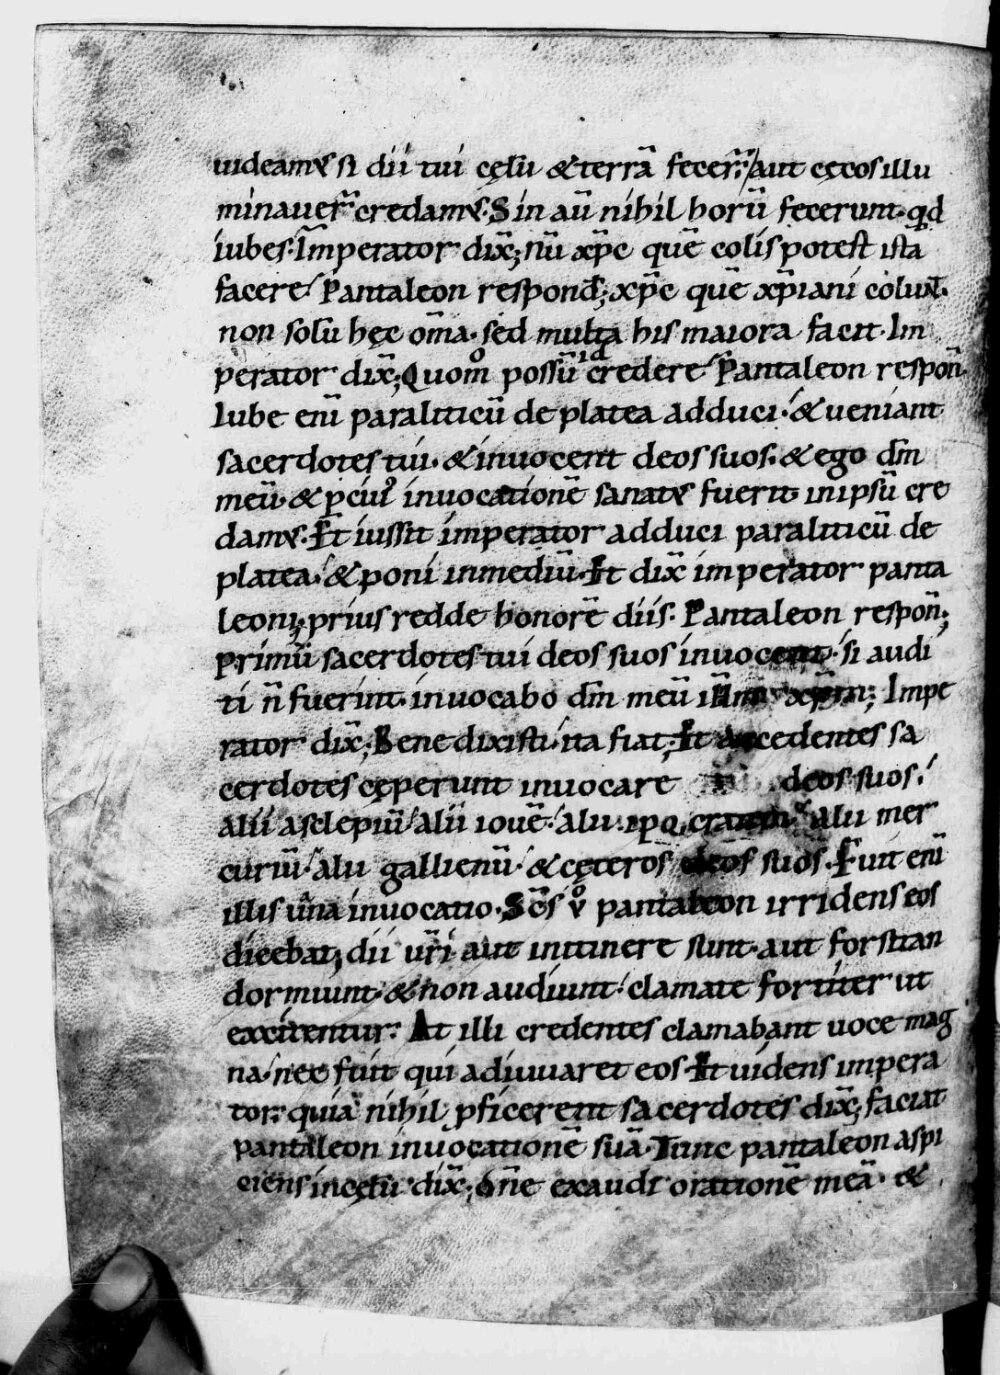 uideamus si dii tui cęlū &terrā fecer̄. aut cęcos illu
minauer̄ credamus. Sin aū nihil horū fecerunt. qd
iubes. Imperator dix̄; nū xp̄c quē colis potest ista
facere. Pantaleon respond̄; xp̄c quē xp̄iani colunt.
non solū hęc om̄a. sed multa his maiora facit. Im
perator dix̄; Quom̊ possū id credere. Pantaleon respon̄.
Iube enī paraliticū de platea adduci. & ueniant
sacerdotes tui. & inuocent deos suos. & ego dm̄
meū. & p cuiꝰ inuocationē sanatus fuerit inipsū cre
damus. Et iussit imperator adduci paraliticū de
platea. & poni inmediū. Et dix̄ imperator panta
leoni; prius redde honorē diis. Pantaleon respon̄;
primū sacerdotes tui deos suos inuocent. si audi
ti n̄ fuerint. inuocabo dm̄ meū xp̄m; Impe
rator dix̄; Bene dixisti. ita fiat; Et accedentes sa
cerdotes cęperunt inuocare deos suos.
alii asclepiū. alii iouē. alii ipocratem. alii mer
curiū. alii gallienū. & cęteros deos suos. Fuit enī
illis una inuocatio. Sc̄s v̊ pantaleon irridens eos
dicebat; dii ur̄i aut initinere sunt. aut forsitan
dormiunt. & non audiunt. clamate fortiter ut
excitentur. At illi credentes clamabant uoce mag
na. nec fuit qui adiuuaret eos. Et uidens impera
tor quia nihil ꝓficerent sacerdotes dix̄; faciat
pantaleon inuocationē suā. Tunc pantaleon aspi
ciens incęlū dix̄; dn̄e exaudi orationē meā. &